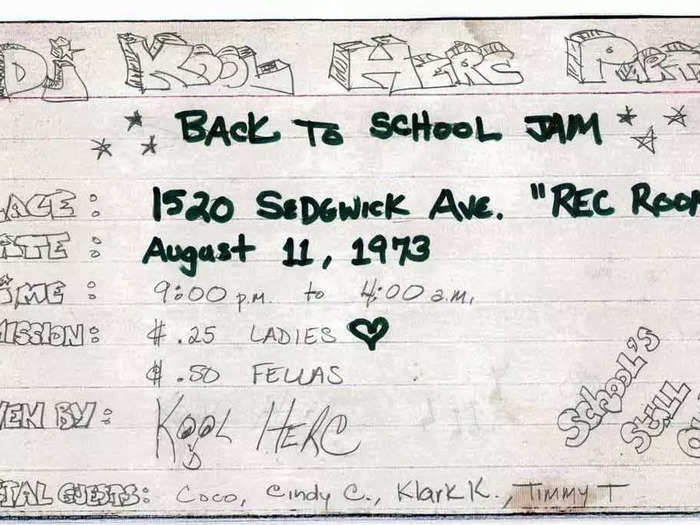 DJ KOOL HERC PART
BACK TO SCHOOL JAM
LACE: 1520 SEDGWICK AVE. "REC ROOM
ATE: August 11, 1973
IME: 9:00 p.m. to 4:00 a.m.
MISSION: $.25 LADIES ♥
$.50 FELLAS
VEN BY: KOOL HERC
School's
Still
IAL GUESTS: Coco, Cindy C., Klark K., Timmy T